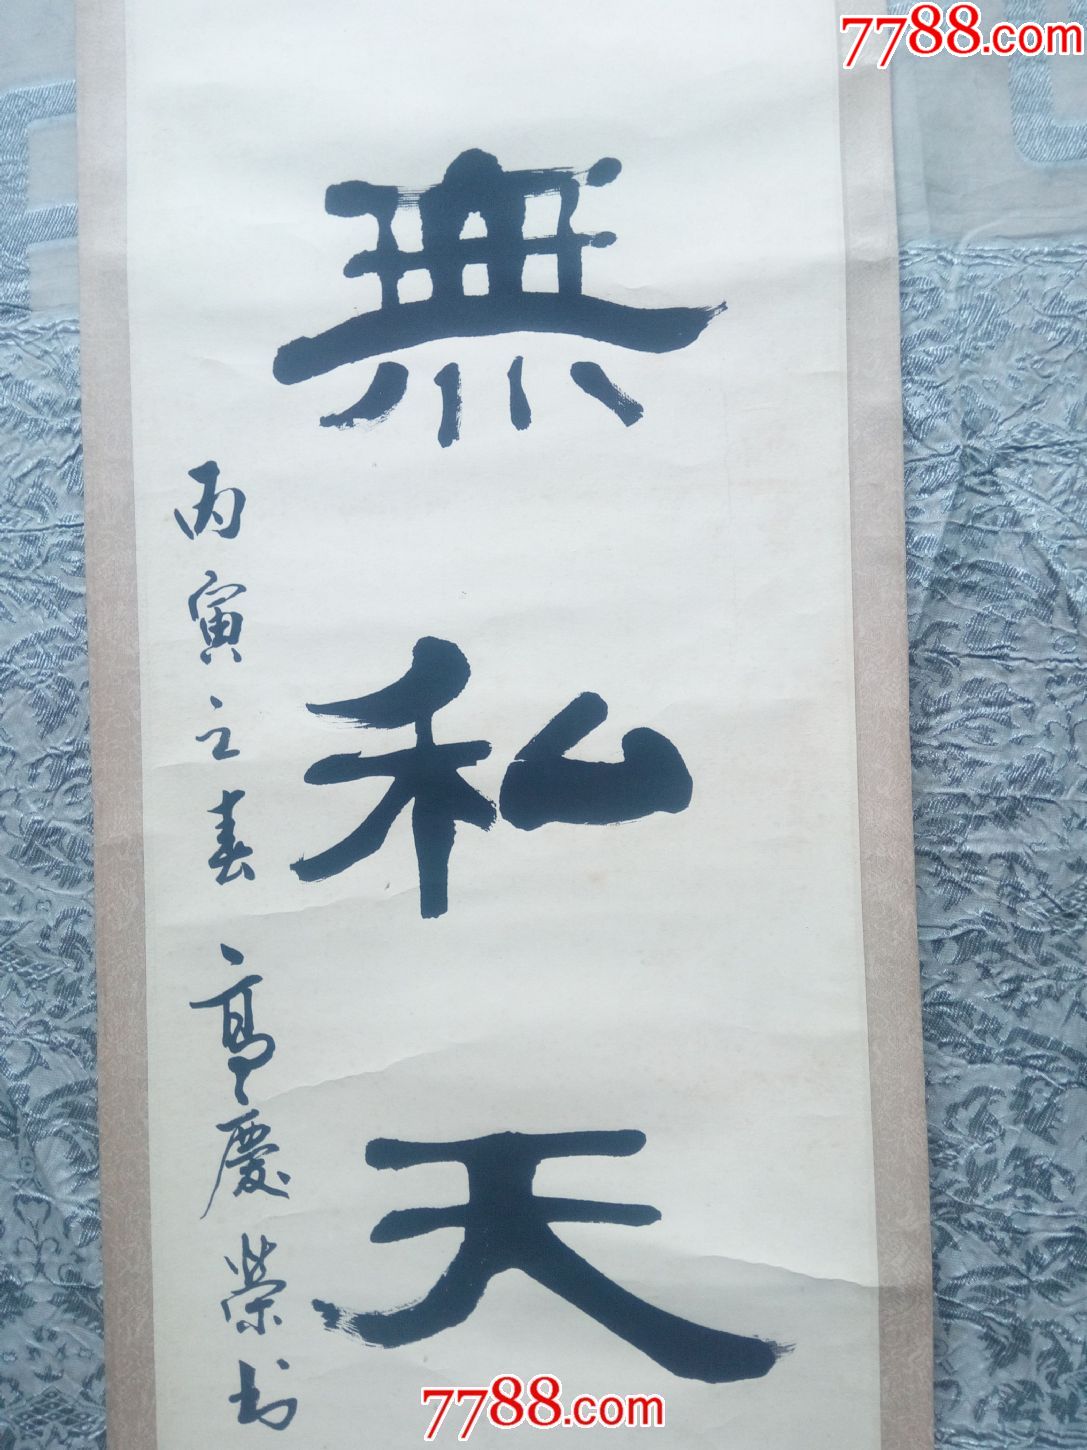 7788.com
無私天
丙寅之春高慶榮书
7788.com